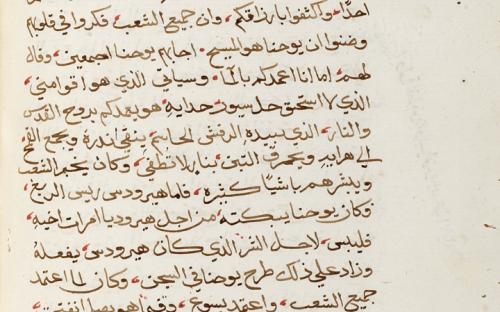 احدًا، واكتفوا بارزاقكم، وان جميع الشعب، فكروا في قلوبهم
وضنوا ان يوحنا هو المسيح، اجابهم يوحنا اجمعين، وقال
لهم، اما انا اعمدكم بالماء، وسياتي الذي هو اقوا مني،
الذي لا استحق حل سيور حدايه، هو يعمدكم بروح القدس
والنار، الذي بيده الرفش الحاسم، ينقي اندره، ويجمع القمح
الي هرايه، ويحرق التبن، بنار لا تطفى، وكان يخبر الشعب
ويبشرهم باشيًا كثيره، فاما هيرودس ريس الربع،
فكان يوحنا يبكته، من اجل هيروديا امراة اخيه،
فليبس، لاجل الشر الذي كان هيرودس، يفعله
وزاد علي ذلك طرح يوحنا في السجن، وكان لما اعتمد
جميع الشعب، واعتمد يسوع، وفيما هو يصلي انفتحت